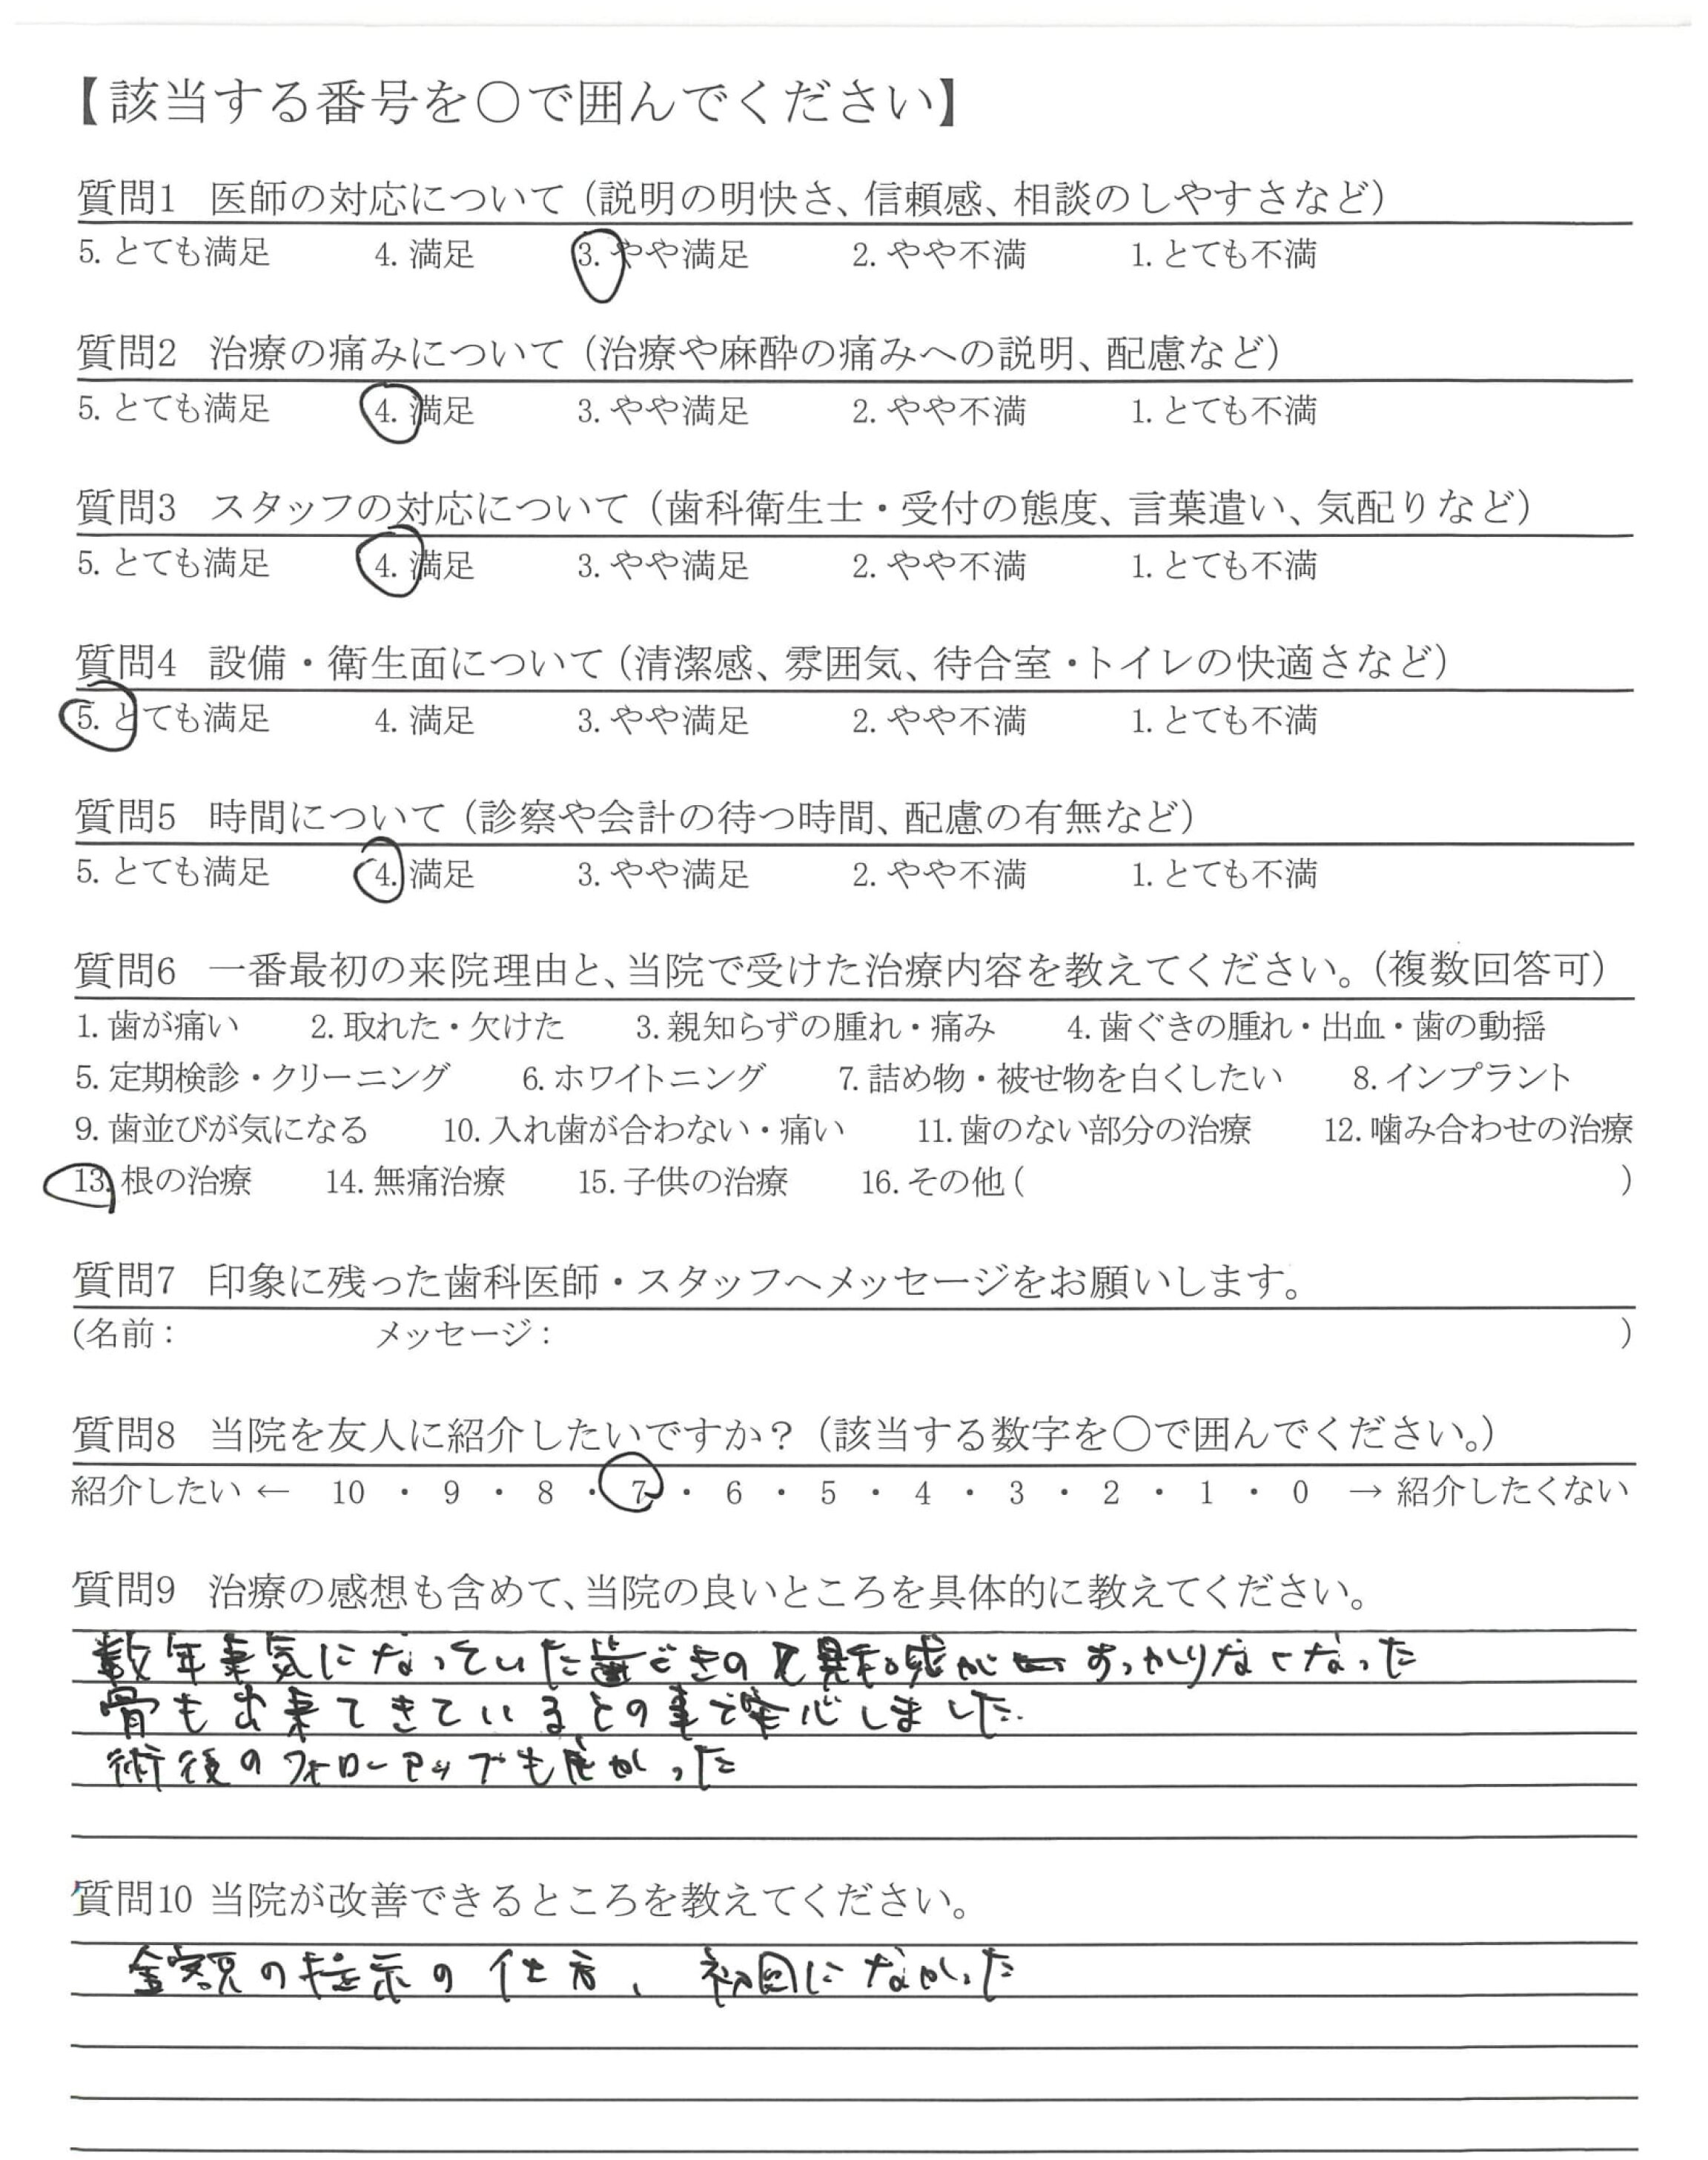 【該当する番号を〇で囲んでください】
質問1 医師の対応について（説明の明快さ、信頼感、相談のしやすさなど）
5. とても満足 4. 満足 3. やや満足 2. やや不満 1. とても不満
質問2 治療の痛みについて（治療や麻酔の痛みへの説明、配慮など）
5. とても満足 4. 満足 3. やや満足 2. やや不満 1. とても不満
質問3 スタッフの対応について（歯科衛生士・受付の態度、言葉遣い、気配りなど）
5. とても満足 4. 満足 3. やや満足 2. やや不満 1. とても不満
質問4 設備・衛生面について（清潔感、雰囲気、待合室・トイレの快適さなど）
5. とても満足 4. 満足 3. やや満足 2. やや不満 1. とても不満
質問5 時間について（診察や会計の待つ時間、配慮の有無など）
5. とても満足 4. 満足 3. やや満足 2. やや不満 1. とても不満
質問6 一番最初の来院理由と、当院で受けた治療内容を教えてください。（複数回答可）
1. 歯が痛い 2. 取れた・欠けた 3. 親知らずの腫れ・痛み 4. 歯ぐきの腫れ・出血・歯の動揺
5. 定期検診・クリーニング 6. ホワイトニング 7. 詰め物・被せ物を白くしたい 8. インプラント
9. 歯並びが気になる 10. 入れ歯が合わない・痛い 11. 歯のない部分の治療 12. 噛み合わせの治療
13. 根の治療 14. 無痛治療 15. 子供の治療 16. その他（ ）
質問7 印象に残った歯科医師・スタッフへメッセージをお願いします。
（名前： メッセージ： ）
質問8 当院を友人に紹介したいですか？（該当する数字を〇で囲んでください。）
紹介したい ← 10 ・ 9 ・ 8 ・ 7 ・ 6 ・ 5 ・ 4 ・ 3 ・ 2 ・ 1 ・ 0 → 紹介したくない
質問9 治療の感想も含めて、当院の良いところを具体的に教えてください。
数年来気になっていた歯ぐきの違和感がすっかりなくなった
骨も出来てきているとの事で安心しました
術後のフォローアップも良かった
質問10 当院が改善できるところを教えてください。
金額の指示の仕方、初回になかった